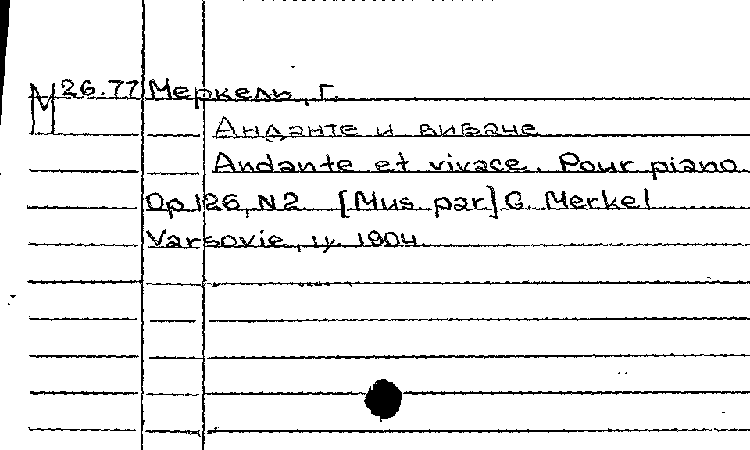 М 26.77 Меркель, Г.
Анданте и виваче
Andante et vivace. Pour piano.
Op 126, N2 [Mus. par] G. Merkel
Varsovie, ц. 1904.